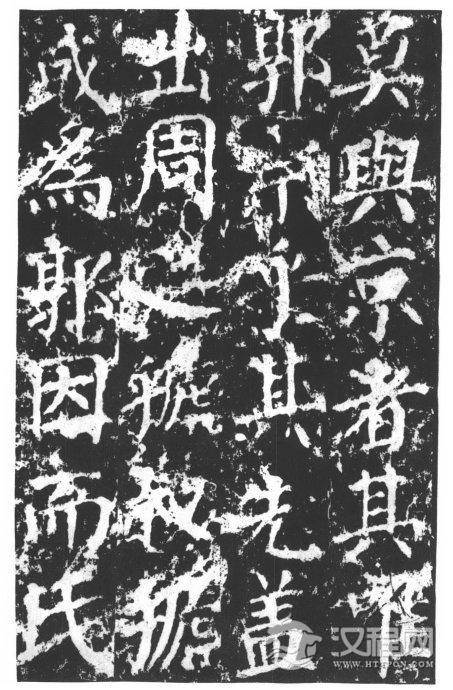 莫與京者其唯
郭宗乎其先盖
出周之虢叔虢
或為郭因而氏
汉程网
WWW.HTTPCN.COM